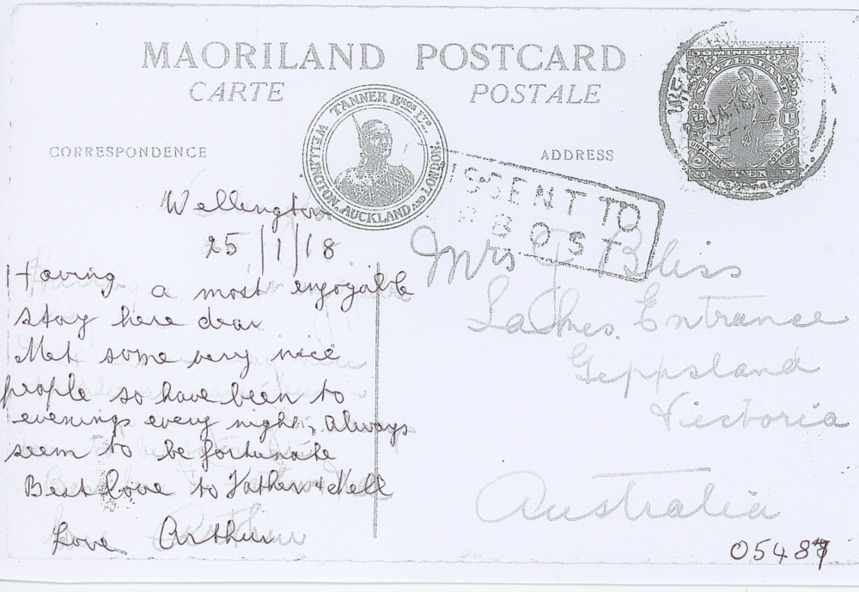 MAORILAND POSTCARD
CARTE POSTALE
TANNER BROS LTD.
WELLINGTON, AUCKLAND AND LONDON.
CORRESPONDENCE
ADDRESS
DOMINION OF
NEW ZEALAND
SENT TO
Wellington
25/1/18
Having a most enjoyable
stay here dear
Met some very nice
people so have been to
evenings every night, always
seem to be fortunate
Best love to Father & Nell
Love Arthur
Mrs Bliss
Lakes Entrance
Gippsland
Victoria
Australia